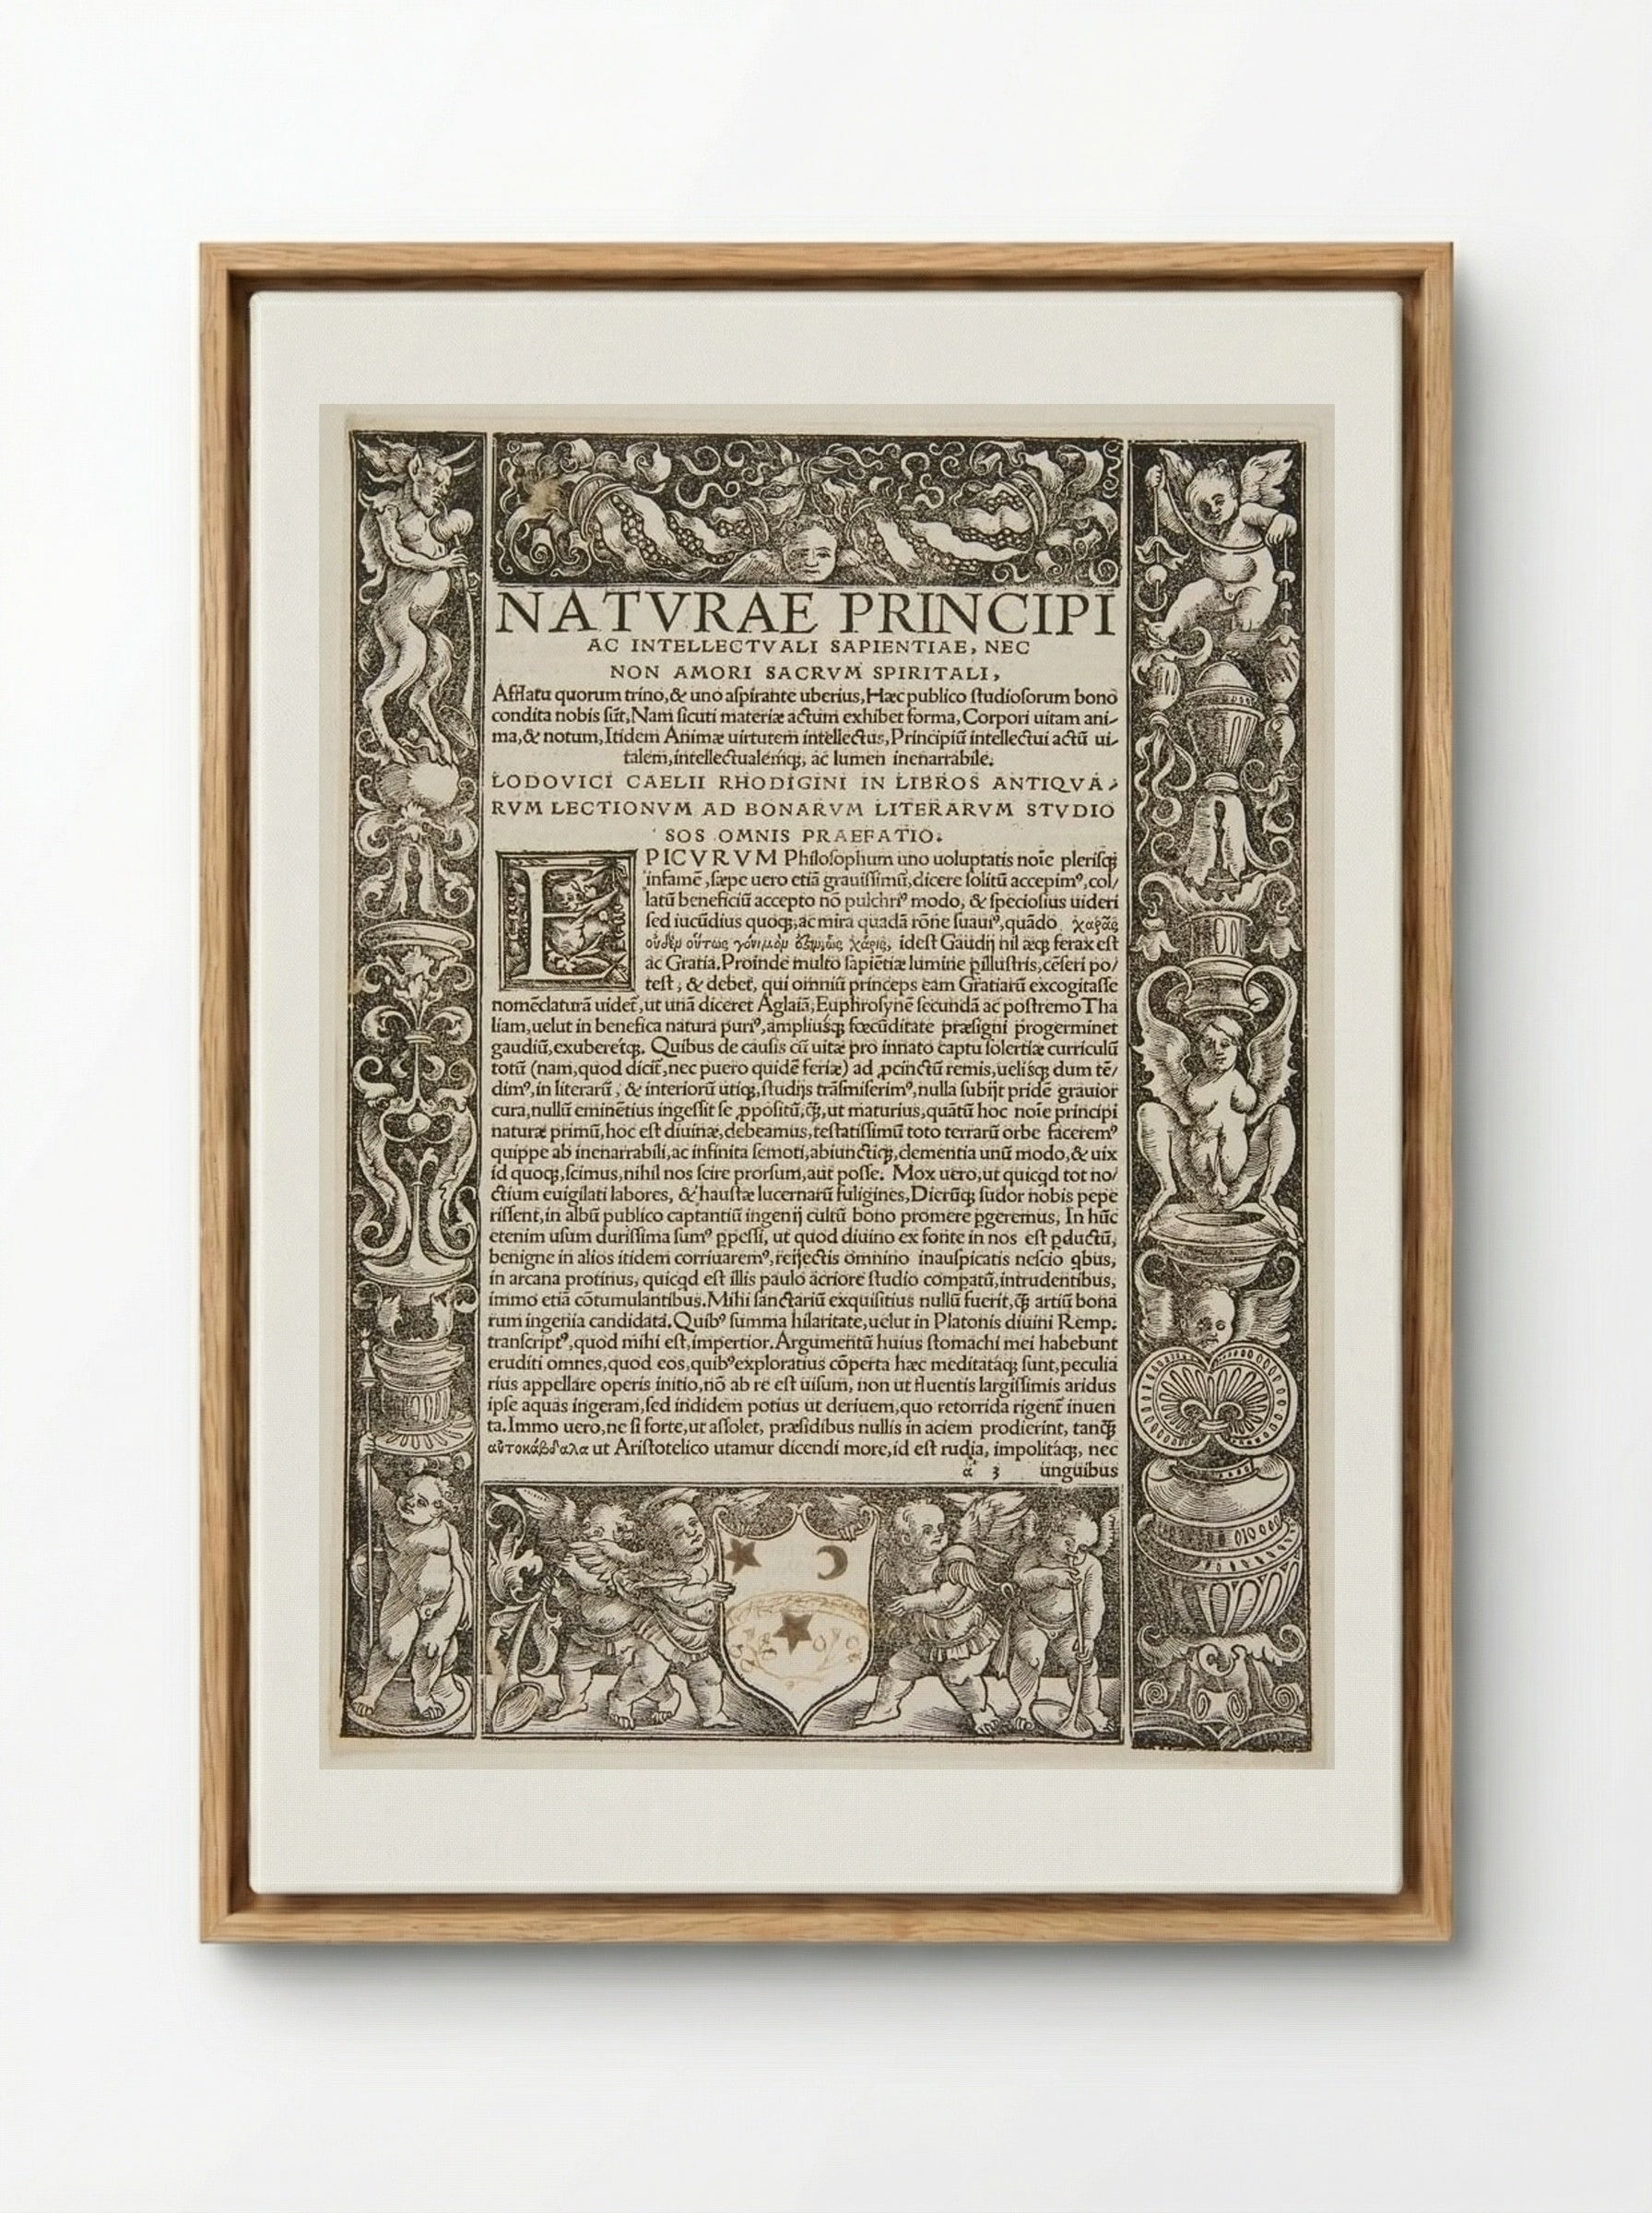 NATVRAE PRINCIPI
AC INTELLECTVALI SAPIENTIAE, NEC
NON AMORI SACRVM SPIRITALI,
Afflatu quorum trino,& uno aſpirante uberius,Hæc publico ſtudioſorum bono
condita nobis ſūt,Nam ſicuti materiæ actum exhibet forma,Corpori uitam ani-
ma,& notum,Itidem Animæ uirtutem intellectus,Principiū intellectui actū ui-
talem,intellectualemq́;, ac lumen inenarrabile.
LODOVICI CAELII RHODIGINI IN LIBROS ANTIQVA-
RVM LECTIONVM AD BONARVM LITERARVM STVDIO
SOS OMNIS PRAEFATIO.
EPICVRVM Philoſophum uno uoluptatis noīe pleriſq;
infamē,ſæpe uero etiā grauiſſimū,dicere ſolitū accepimꝰ,col/
latū beneficiū accepto nō pulchriꝰ modo, & ſpecioſius uideri
ſed iucūdius quoq;,ac mira quadā rōne ſuauiꝰ,quādo χαρᾶς
οὐδὲμ οὕτως γόνιμομ ὡς χάρις, ideſt Gaudij nil æq; ferax eſt
ac Gratia.Proinde multo ſapiētiæ lumine ꝑilluſtris,cēſeri po/
teſt, & debet, qui omniū princeps eam Gratiarū excogitaſſe
nomēclaturā uidet̄,ut unā diceret Aglaiā,Euphroſynē ſecundā ac poſtremo Tha
liam,uelut in benefica natura puriꝰ,ampliuſq; fœcūditate præſigni progerminet
gaudiū,exuberet́q;. Quibus de cauſis cū uitæ pro innato captu ſolertiæ curriculū
totū (nam,quod dicit̄,nec puero quidē feriæ) ad ꝓcinctū remis,ueliſq; dum tē/
dimꝰ,in literarū, & interiorū utiq; ſtudijs trāſmiſerimꝰ,nulla ſubijt pridē grauior
cura,nullū eminētius ingeſſit ſe ꝓpoſitū,q̄ȝ,ut maturius,quātū hoc noīe principi
naturæ primū,hoc eſt diuinæ,debeamus,teſtatiſſimū toto terrarū orbe faceremꝰ
quippe ab inenarrabili,ac infinita ſemoti,abiunctiq́;,clementia unū modo,& uix
id quoq;,ſcimus,nihil nos ſcire prorſum,aut poſſe. Mox uero,ut quicqd tot no/
ctium euigilati labores, & hauſtæ lucernarū fuligines,Dictūq; ſudor nobis pepe
riſſent,in albū publico captantiū ingenij cultū bono promere ꝑgeremus, In hūc
etenim uſum duriſſima ſumꝰ ꝑpeſſi, ut quod diuino ex fonte in nos eſt ꝓductū,
benigne in alios itidem corriuaremꝰ,reijectis omnino inauſpicatis neſcio qbus,
in arcana protinus, quicqd eſt illis paulo acriore ſtudio compatū,intrudentibus,
immo etiā cōtumulantibus.Mihi ſanctariū exquiſitius nullū fuerit,q̄ȝ artiū bona
rum ingenia candidata.Quibꝰ ſumma hilaritate,uelut in Platonis diuini Remp.
tranſcriptꝰ,quod mihi eſt,impertior.Argumentū huius ſtomachi mei habebunt
eruditi omnes,quod eos,quibꝰ exploratius cōperta hæc meditatáq; ſunt,peculia
rius appellare operis initio,nō ab re eſt uiſum, non ut fluentis largiſſimis aridus
ipſe aquas ingeram,ſed indidem potius ut deriuem,quo retorrida rigent̄ inuen
ta.Immo uero,ne ſi forte,ut aſſolet, præſidibus nullis in aciem prodierint, tanq̄ȝ
αὐτοκάβδαλα ut Ariſtotelico utamur dicendi more,id eſt rudia, impolitáq;, nec
a 3 unguibus